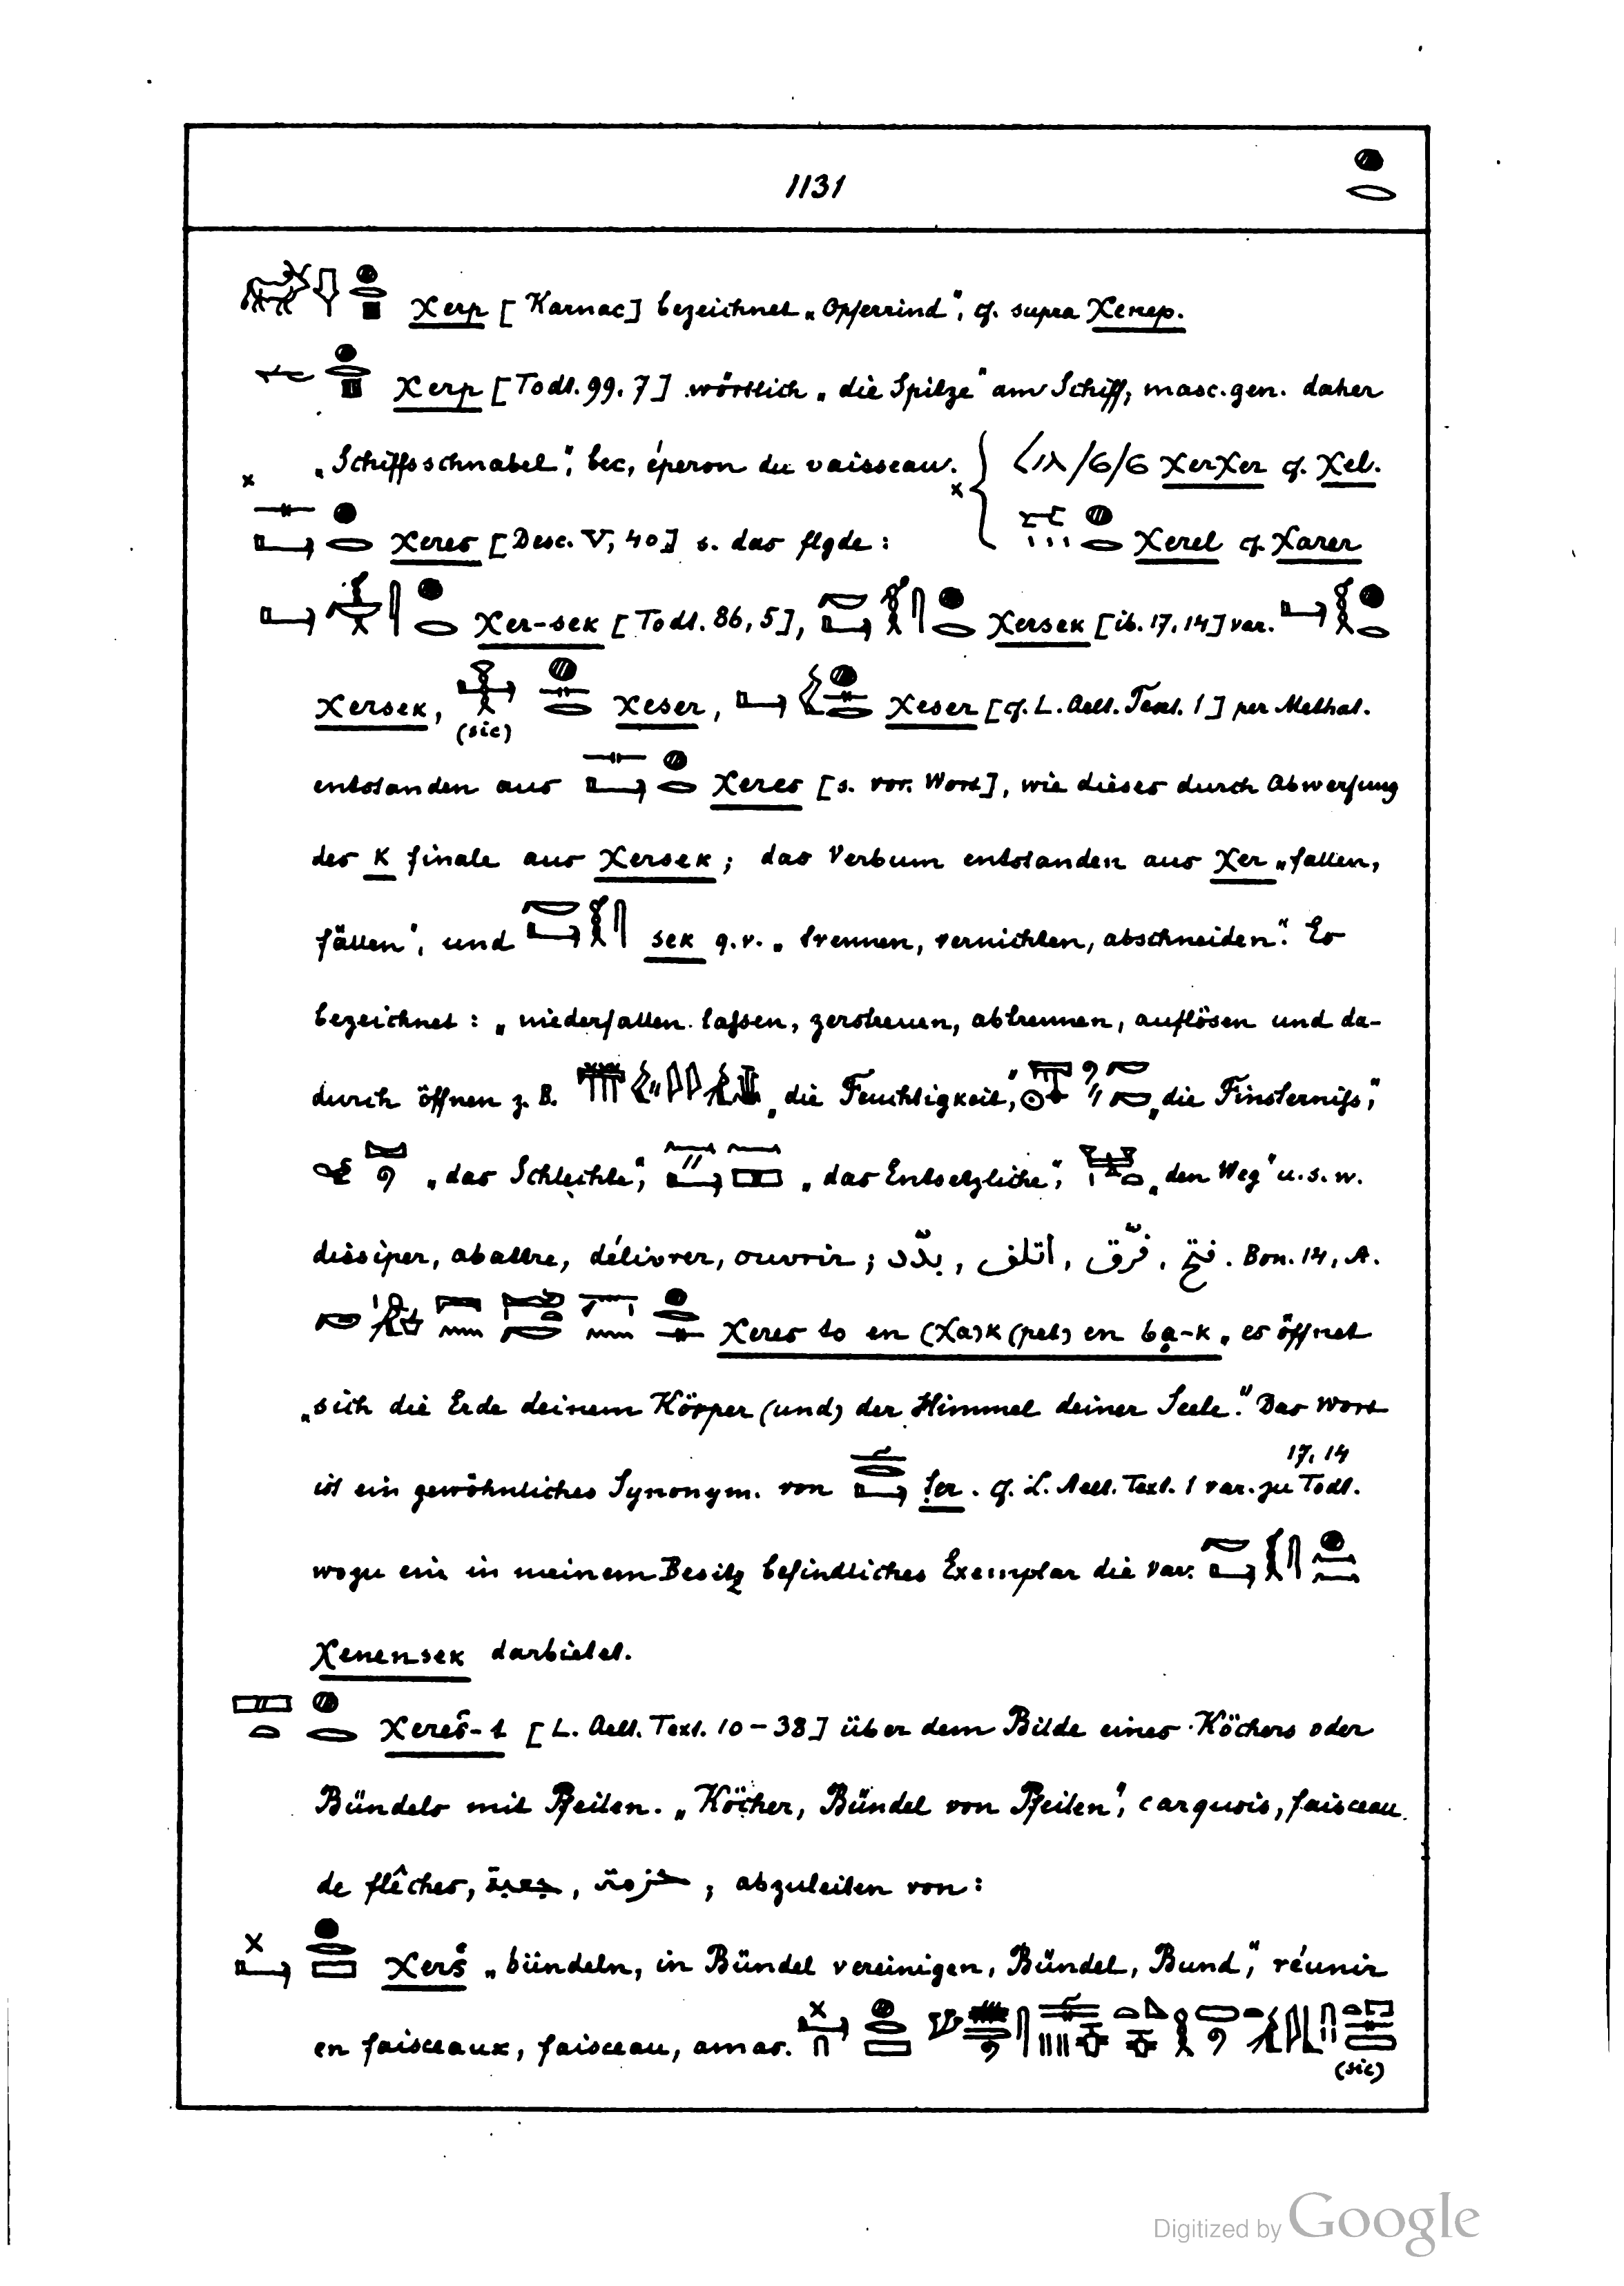 1131
χerp [Karnac] bezeichnet „Opferrind“, cf. supra χenep.
χerp [Todt. 99. 7] wörtlich „die Spitze“ am Schiff, masc. gen. daher
„Schiffsschnabel“, bec, éperon du vaisseau. χerχer cf. χel.
χeres [Desc. V, 40] s. das flgde: χerel cf. χarer
χer-sek [Todt. 86, 5], χersek [ib. 17, 14] var.
χersek, (sic) χeser, χeser [cf. L. Aelt. Text. 1] per Methat.
entstanden aus χeres [s. vor. Wort], wie dieses durch Abwerfung
des K finale aus χersek; das Verbum entstanden aus χer „fallen,
fällen“, und sek q.v. „trennen, vernichten, abschneiden“. Es
bezeichnet: „niederfallen lassen, zerstreuen, abtrennen, auflösen und da-
durch öffnen z. B. „die Feuchtigkeit“, „die Finsterniss“,
„das Schlechte“, „das Entsetzliche“, „den Weg“ u. s. w.
dissiper, abattre, délivrer, ouvrir; بدّد , اتلف , فرّق , فتح . Bon. 14, A.
χeres to en (χa)k (pet) en ba-k „es öffnet
„sich die Erde deinem Körper (und) der Himmel deiner Seele“. Das Wort
17, 14
ist ein gewöhnliches Synonym. von ser. cf. L. Aelt. Text. 1 var. zu Todt.
wozu ein in meinem Besitz befindliches Exemplar die var.
χenensek darbietet.
χereš-t [L. Aelt. Text. 10-38] über dem Bilde eines Köchers oder
Bündels mit Pfeilen. „Köcher, Bündel von Pfeilen“, carquois, faisceau
de flêches, جعبة , حزمة ; abzuleiten von:
χerš „bündeln, in Bündel vereinigen, Bündel, Bund“, réunir
en faisceaux, faisceau, amas.
(sic)
Digitized by Google